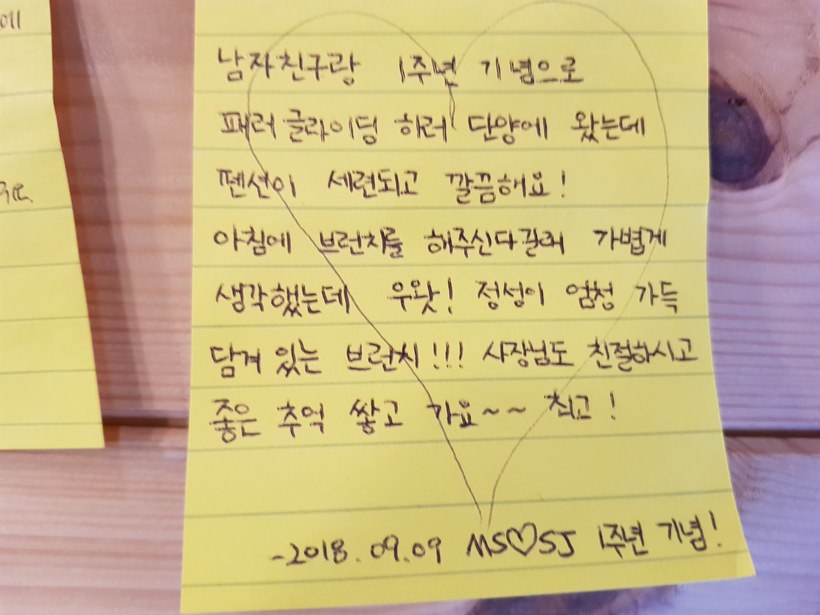 남자친구랑 1주년 기념으로
패러글라이딩 하러 단양에 왔는데
펜션이 세련되고 깔끔해요!
아침에 브런치를 해주신다길래 가볍게
생각했는데 우왓! 정성이 엄청 가득
담겨 있는 브런치!!! 사장님도 친절하시고
좋은 추억 쌓고 가요~~ 최고!
-2018.09.09 MS♡SJ 1주년 기념!